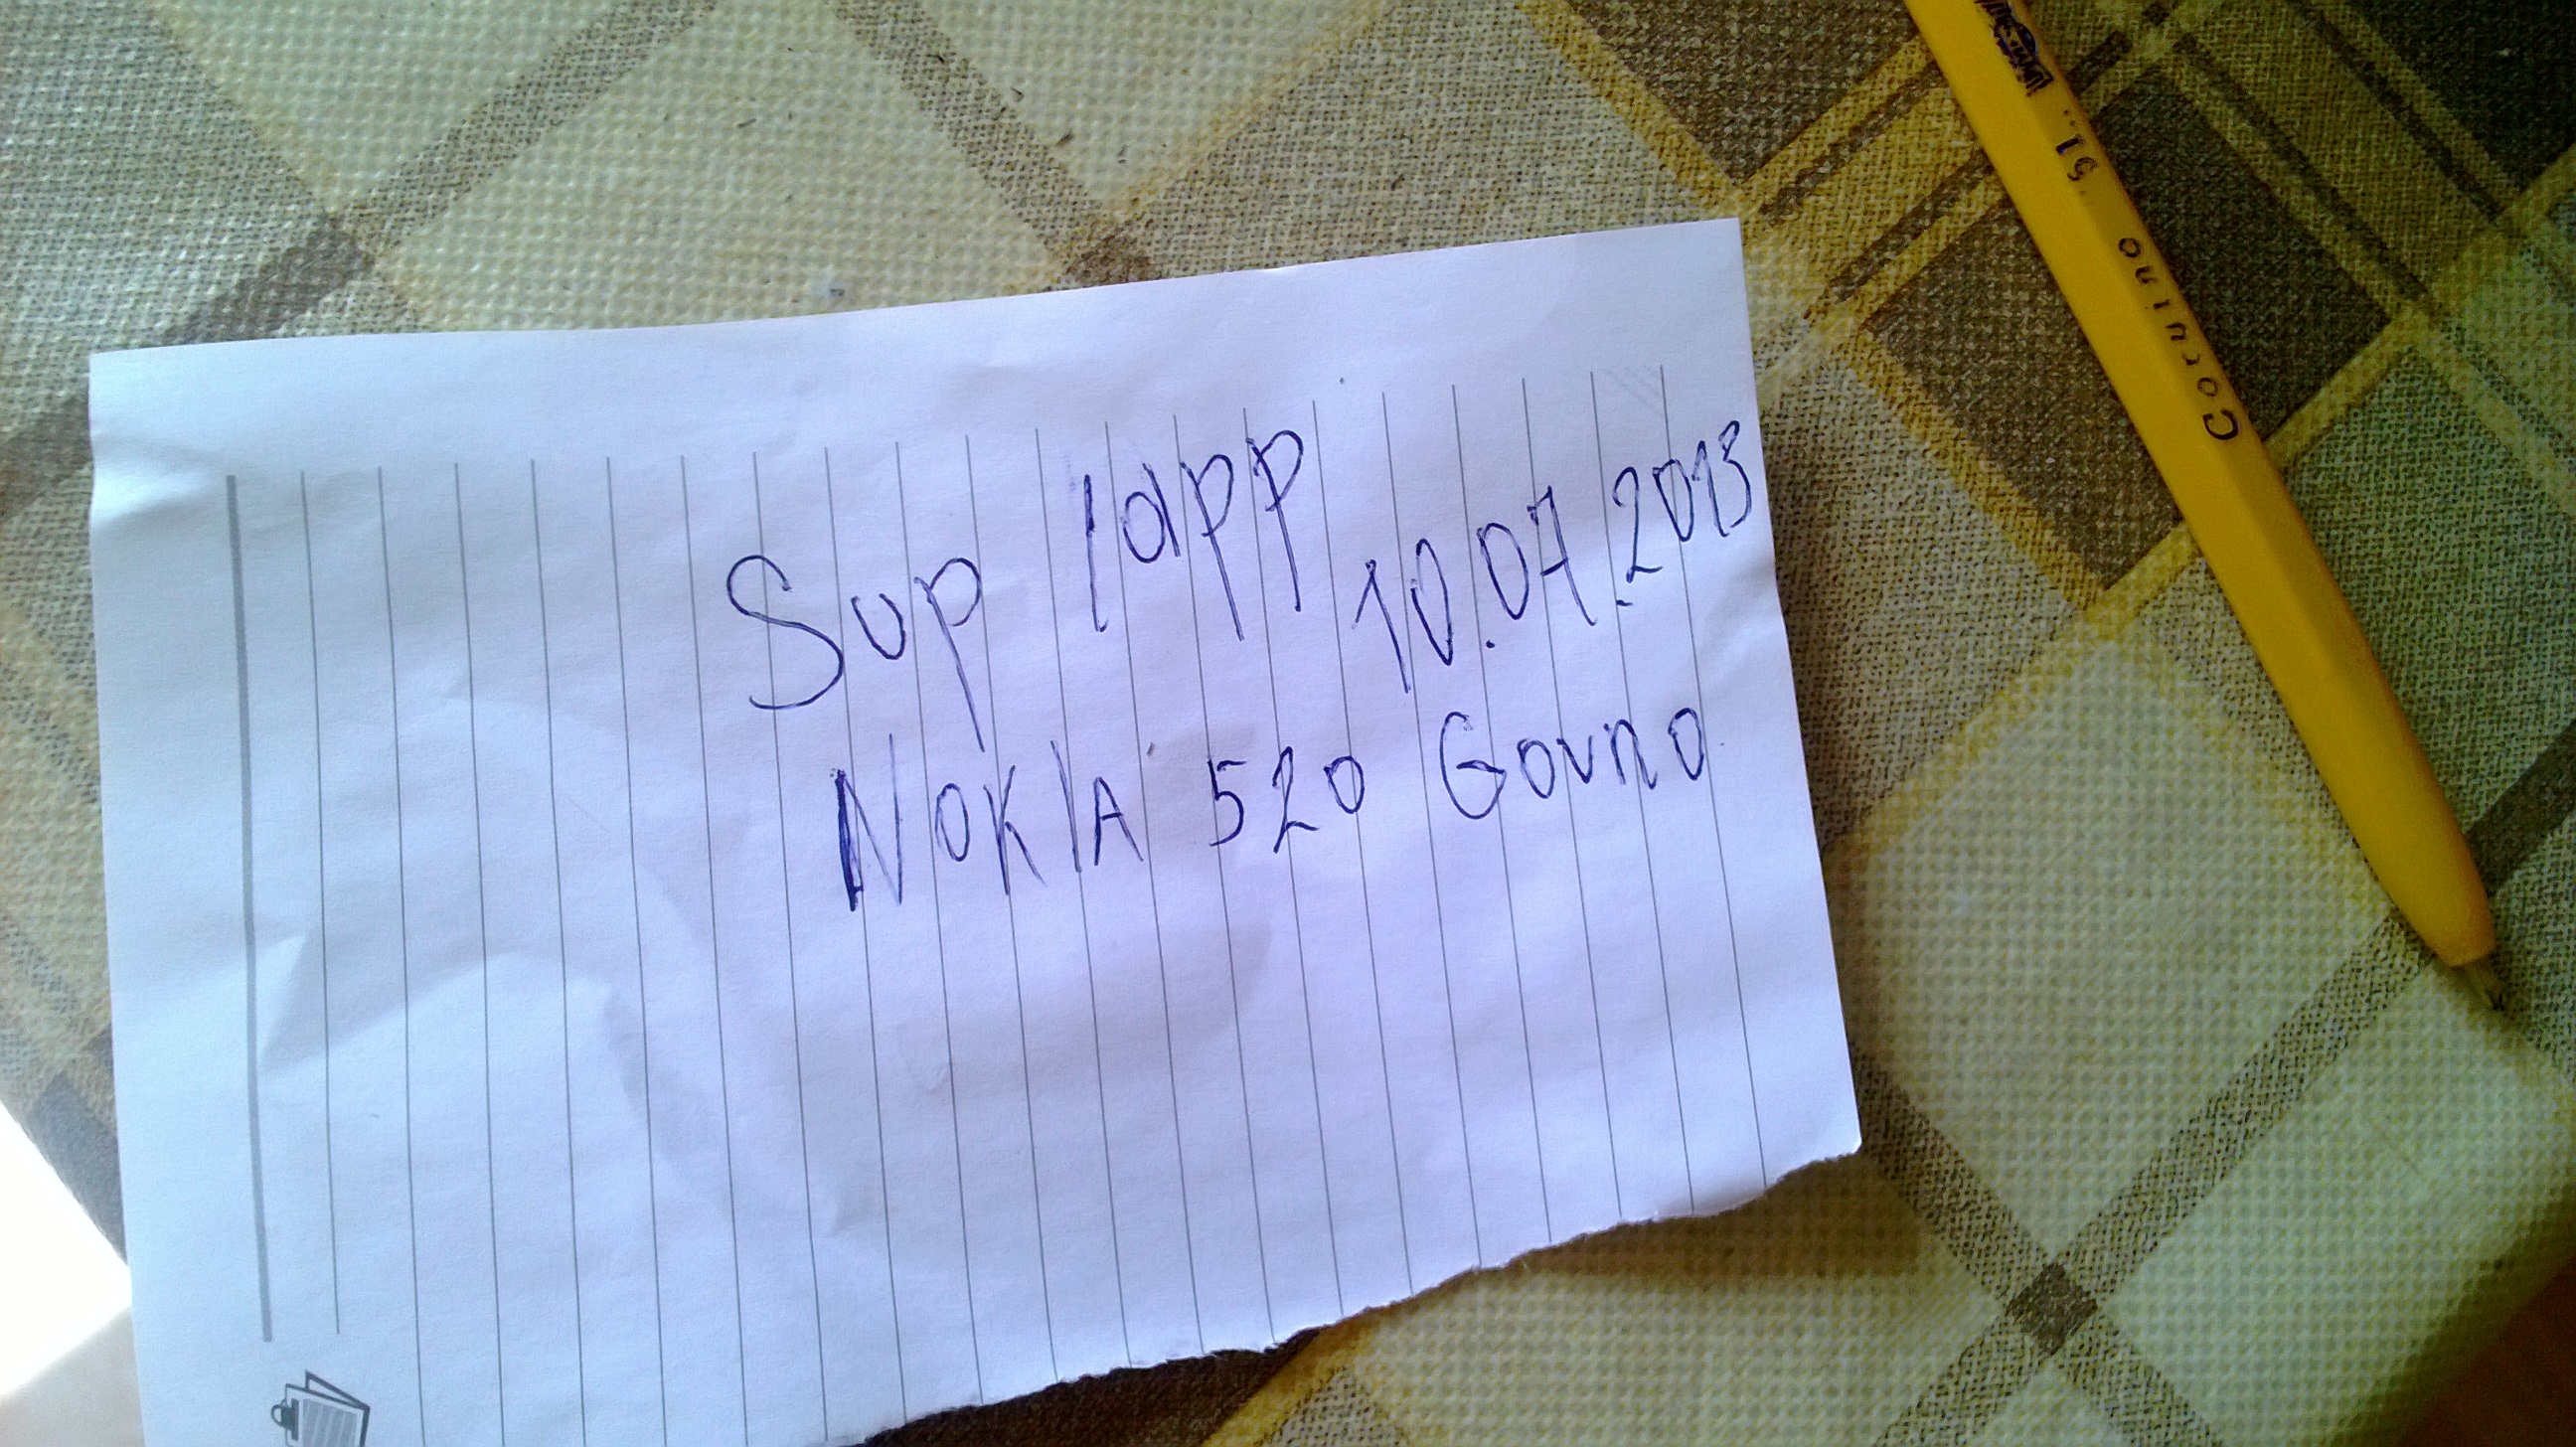 Sup /app 10.07.2013
Nokia 520 Govno
Corvina 51